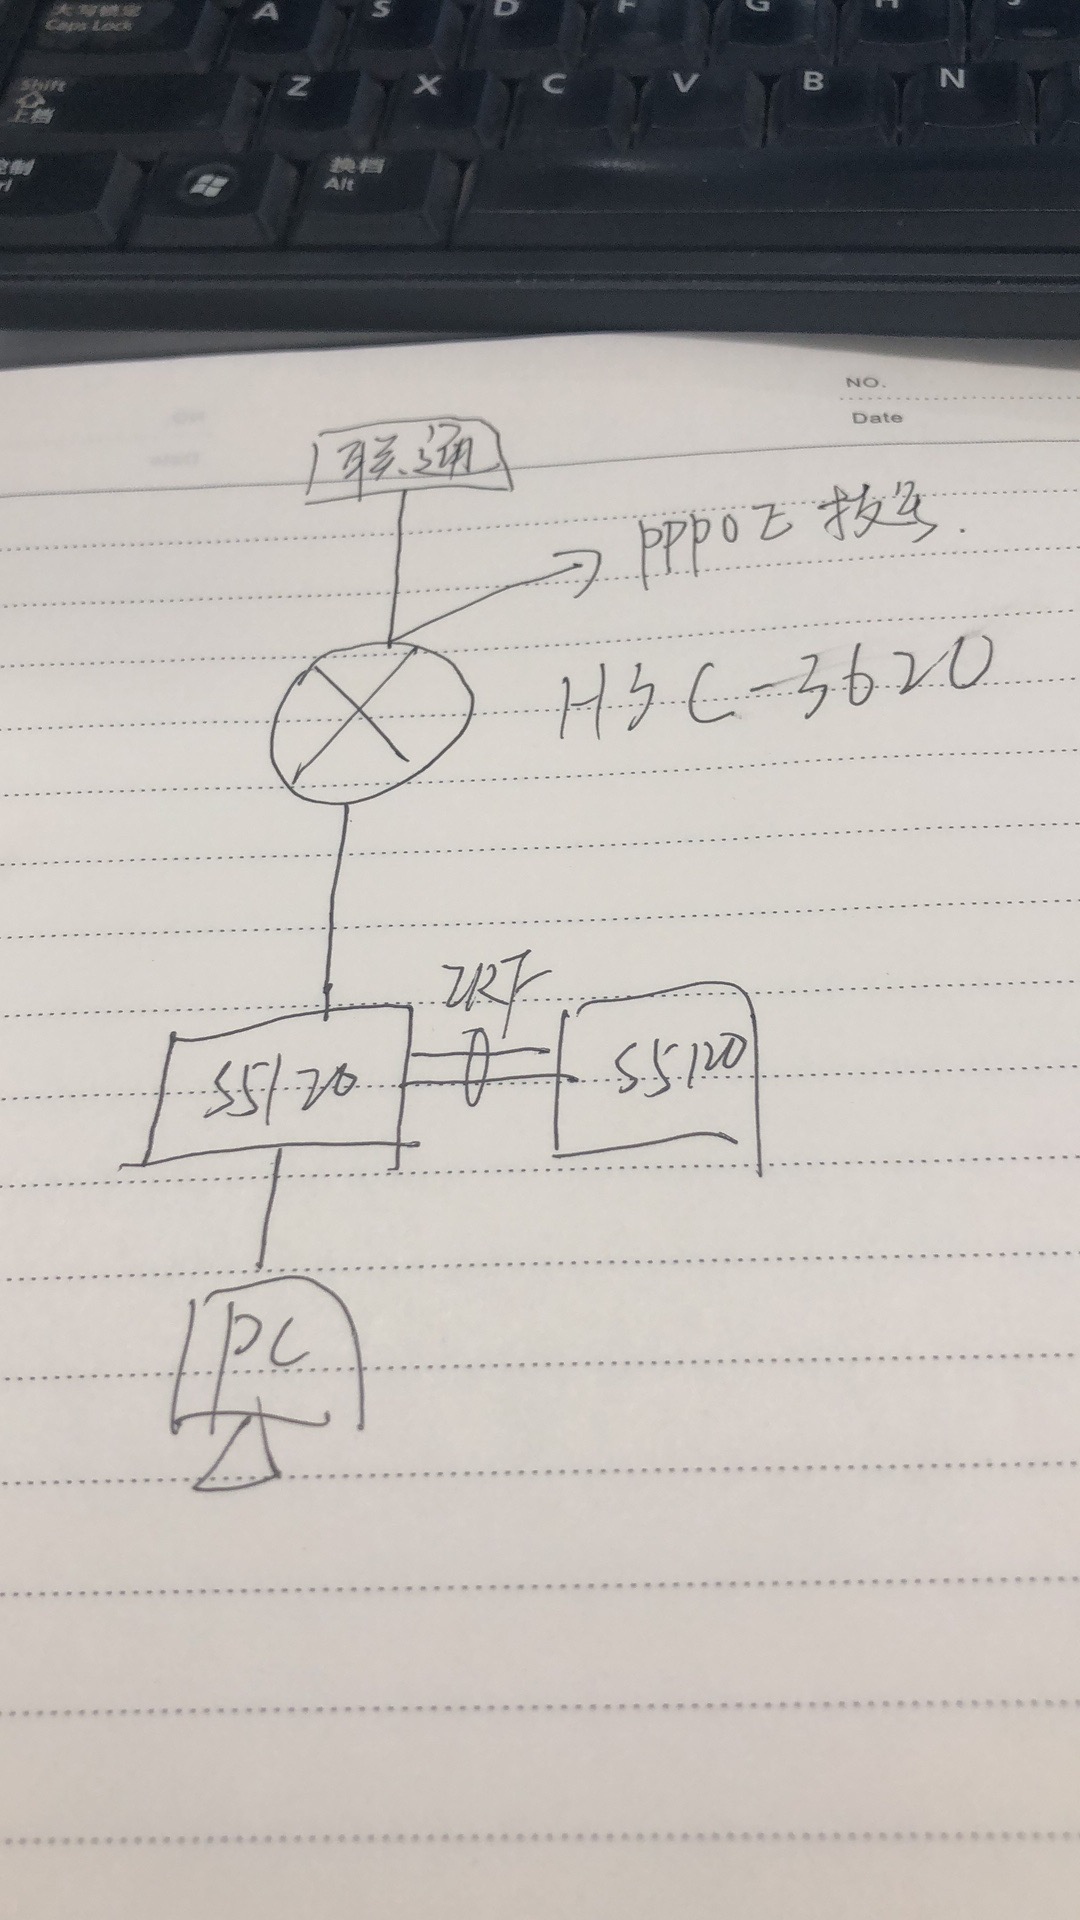 大写锁定
Caps Lock
A S D F G H J
Shift
上档
Z X C V B N
控制
换档
Alt
NO.
Date
联通
PPPOE 拨号.
H3C-3620
IRF
S5120
S5120
PC